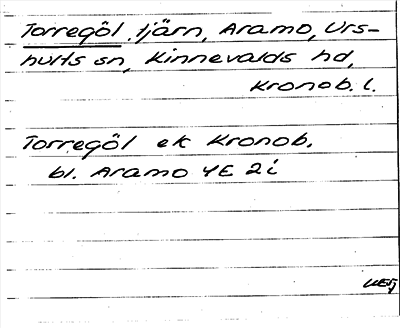 Torregöl, tjärn, Aramo, Urs-
hults sn, Kinnevalds hd,
Kronob. l.
Torregöl ek Kronob.
bl. Aramo 4E 2i